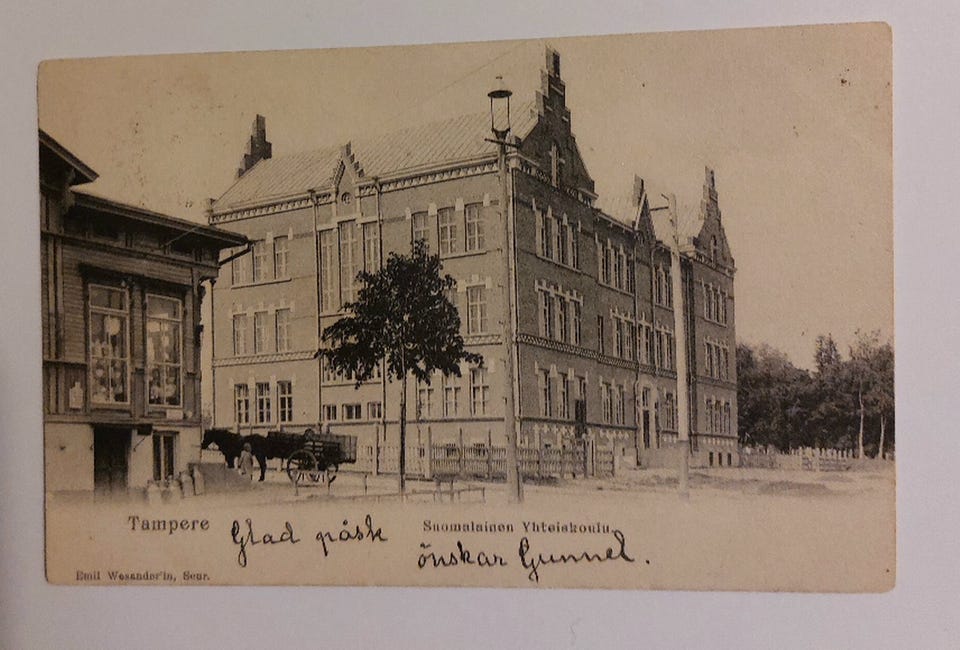 Tampere
Suomalainen Yhteiskoulu.
Glad påsk
önskar Gunnel.
Emil Wesander'in, Seur.